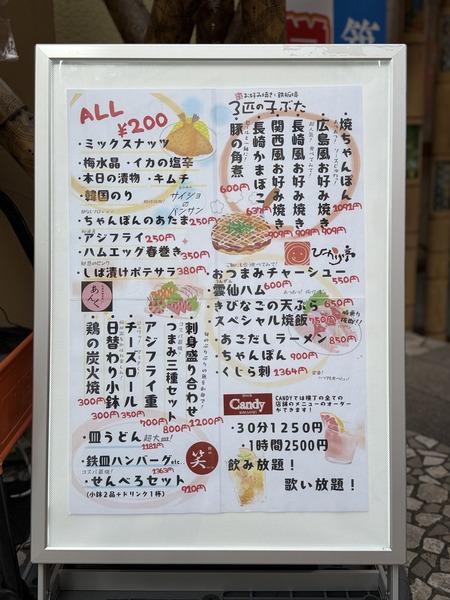 ALL ¥200
・ミックスナッツ
・梅水晶・イカの塩辛
・本日の漬物・キムチ
・韓国のり
サイショの
バンサン
・ちゃんぽんのあたま250円
・アジフライ250円
・ハムエッグ春巻き350円
・しば漬けポテサラ380円
お好み焼き・鉄板焼
3匹の子ぶた
焼ちゃんぽん
1092円
・広島風お好み焼き
909円
・長崎風お好み焼き
909円
・関西風お好み焼き
909円
・長崎かまぼこ
637円
・豚の角煮
600円
ひつじ亭
おつまみチャーシュー
550円
・雲仙ハム 600円
・きびなごの天ぷら 650円
・スペシャル焼飯 750円
・あごだしラーメン 850円
・ちゃんぽん 900円
・くじら刺 1364円
あん
刺身盛り合わせ
1200円
つまみ三種セット
800円
アジフライ重
700円
・チーズロール
350円
・日替わり小鉢
300円
・鶏の炭火焼
300円
・皿うどん 超大皿!
1181円
・鉄皿ハンバーグetc..
コスパ最強! 1363円
・せんべろセット
(小鉢2品+ドリンク1杯) 910円
笑
Candy
CANDYでは横丁の全ての
店舗のメニューのオーダー
ができます!
・30分1250円
・1時間2500円
飲み放題!
歌い放題!